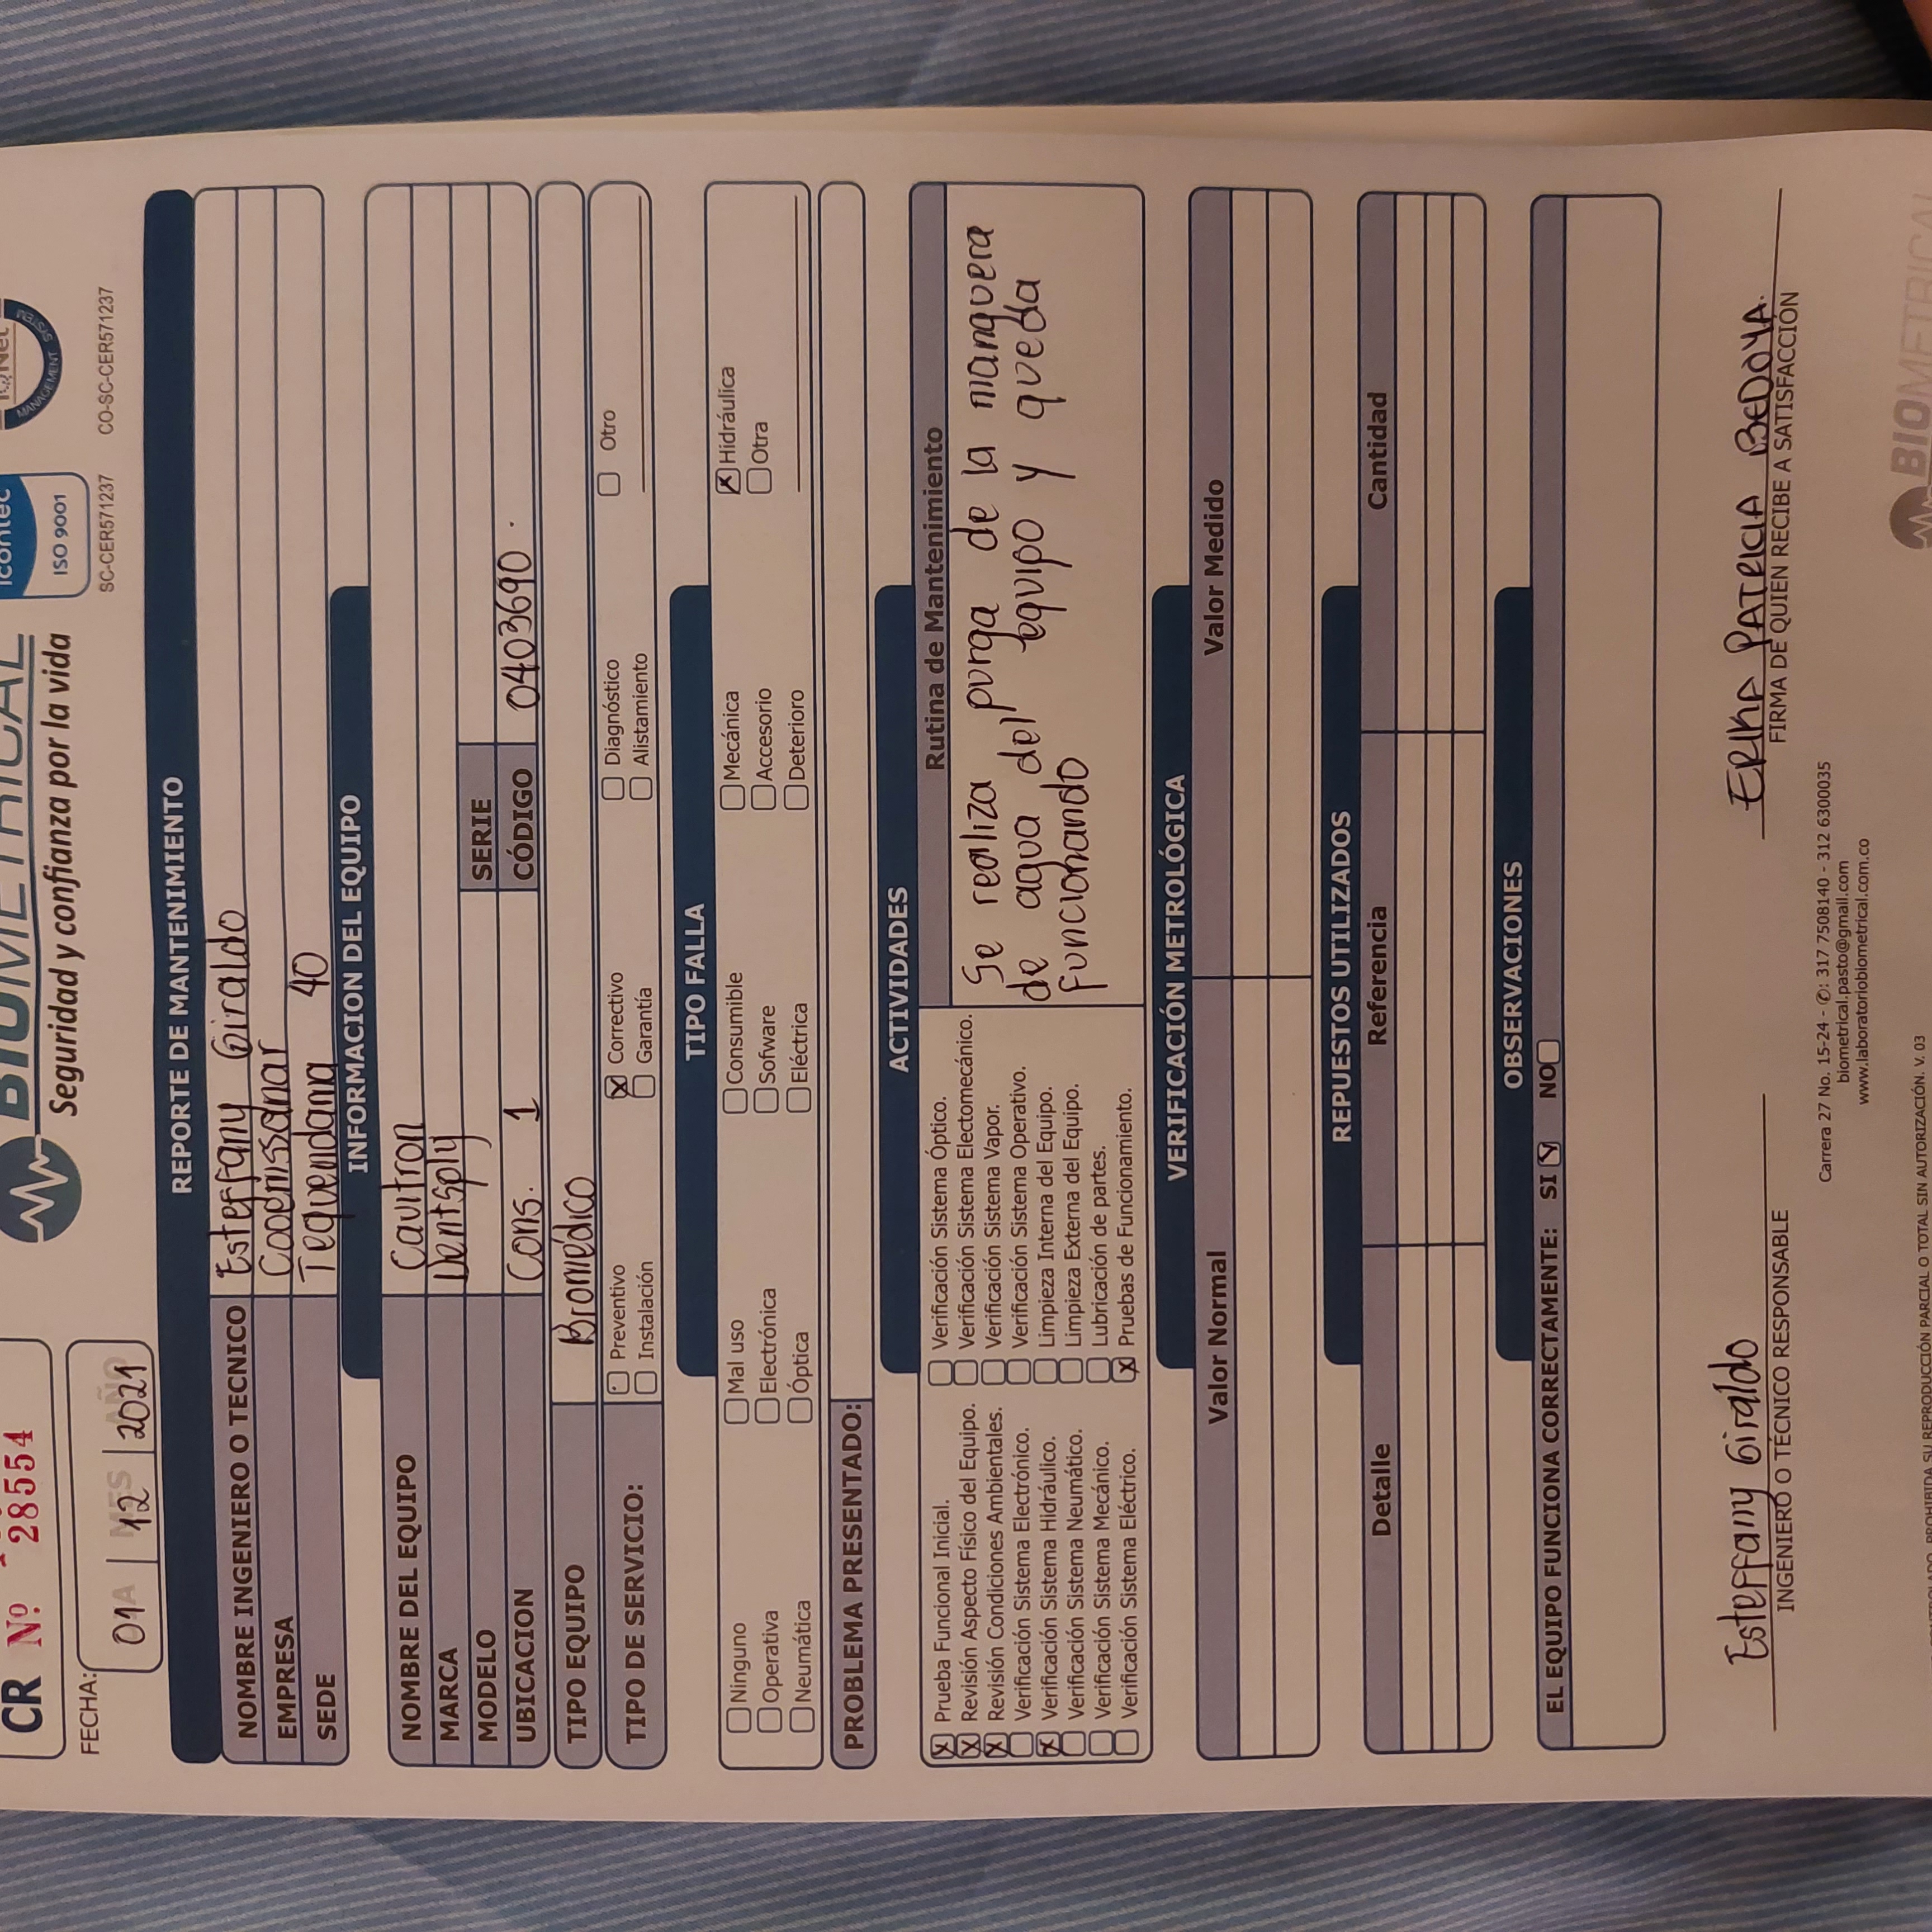 CR Nº 28554
BIOMETRICAL
Seguridad y confianza por la vida
icontec
ISO 9001
SC-CER571237
IQNet
MANAGEMENT SYSTEM
CO-SC-CER571237
FECHA:
DIA MES AÑO
01 12 2021
REPORTE DE MANTENIMIENTO
NOMBRE INGENIERO O TECNICO Esteffany Giraldo
EMPRESA Cooemssanar
SEDE Tequendama 40
INFORMACION DEL EQUIPO
NOMBRE DEL EQUIPO Cavitron
MARCA Dentsply
MODELO SERIE
UBICACION Cons. 1 CÓDIGO 0403690
TIPO EQUIPO Biomédico
TIPO DE SERVICIO:
Preventivo Correctivo Diagnóstico Otro
Instalación Garantía Alistamiento
TIPO FALLA
Ninguno Mal uso Consumible Mecánica Hidráulica
Operativa Electrónica Sofware Accesorio Otra
Neumática Óptica Eléctrica Deterioro
PROBLEMA PRESENTADO:
ACTIVIDADES
Prueba Funcional Inicial.
Revisión Aspecto Físico del Equipo.
Revisión Condiciones Ambientales.
Verificación Sistema Electrónico.
Verificación Sistema Hidráulico.
Verificación Sistema Neumático.
Verificación Sistema Mecánico.
Verificación Sistema Eléctrico.
Verificación Sistema Óptico.
Verificación Sistema Electomecánico.
Verificación Sistema Vapor.
Verificación Sistema Operativo.
Limpieza Interna del Equipo.
Limpieza Externa del Equipo.
Lubricación de partes.
Pruebas de Funcionamiento.
Rutina de Mantenimiento
Se realiza purga de la manguera
de agua del equipo y queda
funcionando
VERIFICACIÓN METROLÓGICA
Valor Normal Valor Medido
REPUESTOS UTILIZADOS
Detalle Referencia Cantidad
OBSERVACIONES
EL EQUIPO FUNCIONA CORRECTAMENTE: SI NO
Esteffany Giraldo
INGENIERO O TÉCNICO RESPONSABLE
ERIKA PATRICIA BEDOYA.
FIRMA DE QUIEN RECIBE A SATISFACCIÓN
Carrera 27 No. 15-24 - ✆: 317 7508140 - 312 6300035
biometrical.pasto@gmail.com
www.laboratoriobiometrical.com.co
CONTROLADO. PROHIBIDA SU REPRODUCCIÓN PARCIAL O TOTAL SIN AUTORIZACIÓN. V. 03
BIOMETRICAL